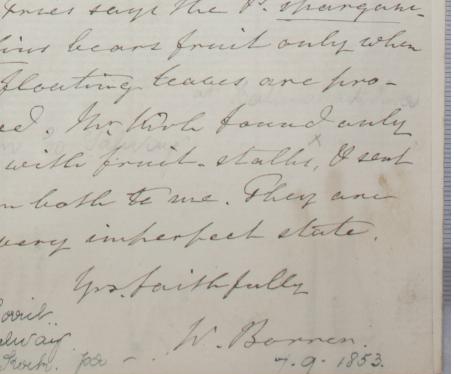 Fries says the P. spargani-
fruit only when
bears
floating leaves are pro-
ed, Mr. Kirk found only
with fruit-stalks, & sent
both to me. They are
very imperfect state.
Yrs. faithfully
W. Borrer.
7. 9. 1853.